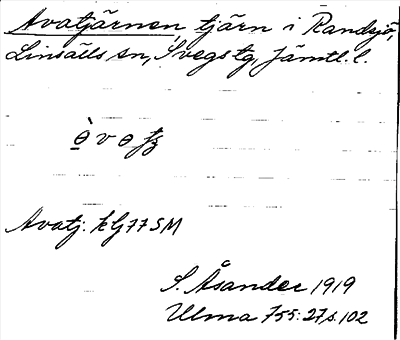 Avatjärnen, tjärn i Randsjö,
Linsälls sn, Svegs tg, Jämtl. l.
Avatj. kG77SM
S. Åsander 1919
Ulma 755:27 s. 102